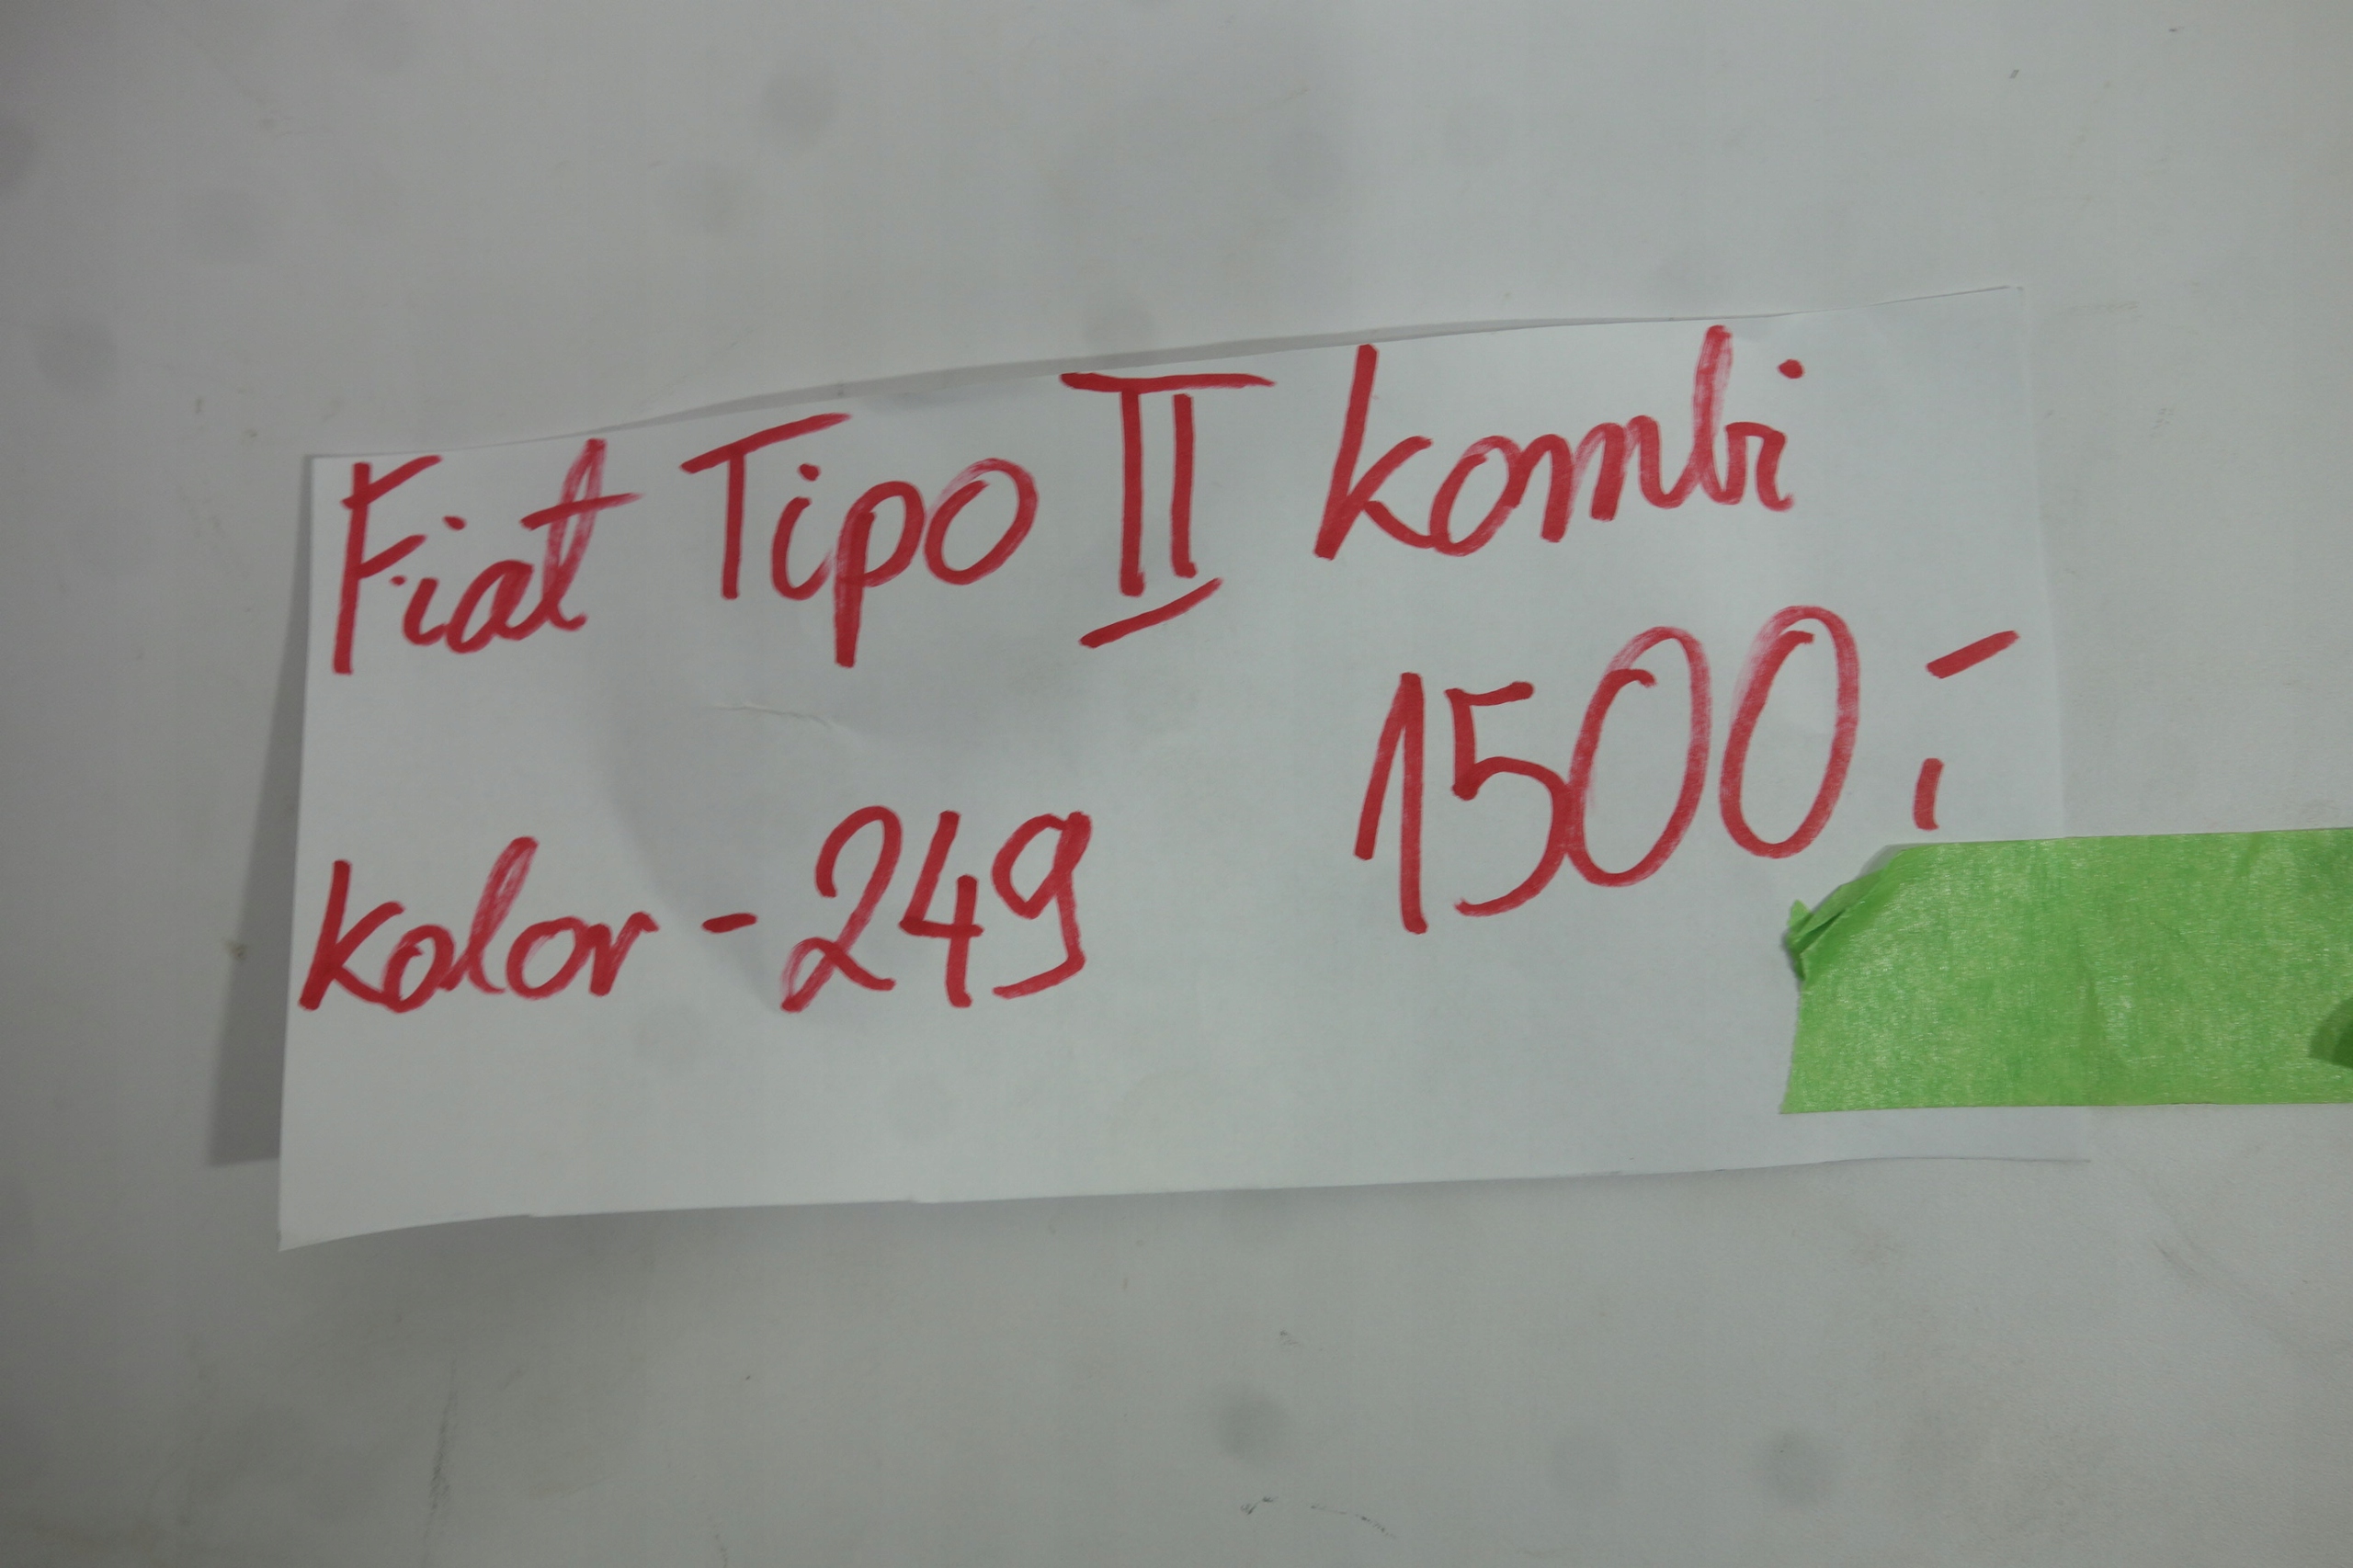 Fiat Tipo II kombi
1500,-
kolor - 249